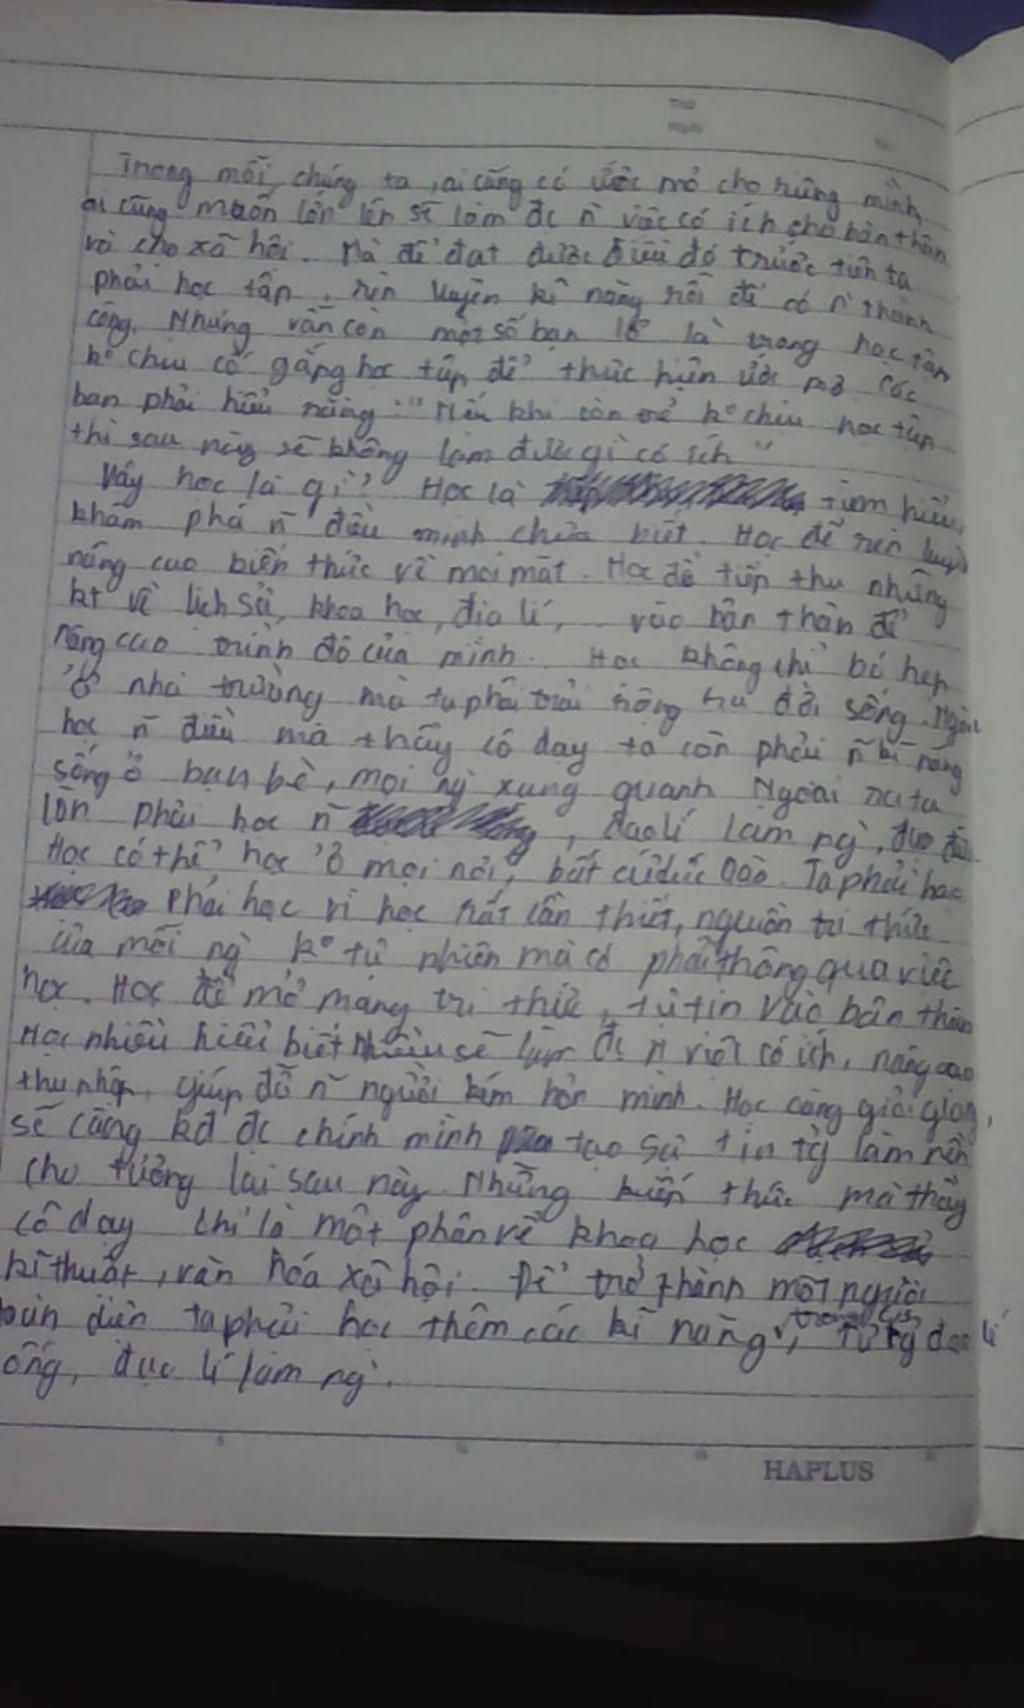 Thứ
Ngày
No.
Trong mỗi chúng ta, ai cũng có ước mơ cho riêng mình,
ai cũng muốn lớn lên sẽ làm đc n~ việc có ích cho bản thân
và cho xã hội. Mà để đạt được điều đó trước tiên ta
phải học tập, rèn luyện kĩ năng rồi để có n~ thành
công. Nhưng vẫn còn một số bạn là trong học tập
ko chịu cố gắng học tập để thực hiện ước mơ. Các
bạn phải hiểu rằng: "Nếu khi còn trẻ ko chịu học tập
thì sau này sẽ không làm được gì có ích"
Vậy học là gì? Học là tìm hiểu,
khám phá n~ điều mình chưa biết. Học để rèn luyện
nâng cao kiến thức về mọi mặt. Học để tiếp thu những
kt về lịch sử, khoa học, địa lí, ... vào bản thân để
nâng cao trình độ của mình. Học không chỉ bó hẹp
ở nhà trường mà ta phải trải rộng ra đời sống. Ngoài
học n~ điều mà thầy cô dạy ta còn phải n~ kĩ năng
sống ở bạn bè, mọi ng` xung quanh. Ngoài ra ta
còn phải học n~ , đạo lí làm ng`, đạo đức.
Học có thể học ở mọi nơi, bất cứ lúc nào. Ta phải học
phải học vì học rất cần thiết, nguồn tri thức
của mỗi ng` ko tự nhiên mà có phải thông qua việc
học. Học để mở mang tri thức, tự tin vào bản thân
Học nhiều hiểu biết nhiều sẽ làm đc n~ việc có ích, nâng cao
thu nhập, giúp đỡ n~ người kém hơn mình. Học càng giỏi giang,
sẽ càng kđ đc chính mình tạo sự tin tg làm nền
cho tương lai sau này. Những kiến thức mà thầy
cô dạy chỉ là một phần về khoa học
kĩ thuật, văn hóa xã hội. Để trở thành một người
toàn diện ta phải học thêm các kĩ năng trong c/s, tư tg đạo lí
sống, đạo lí làm ng`.
HAPLUS